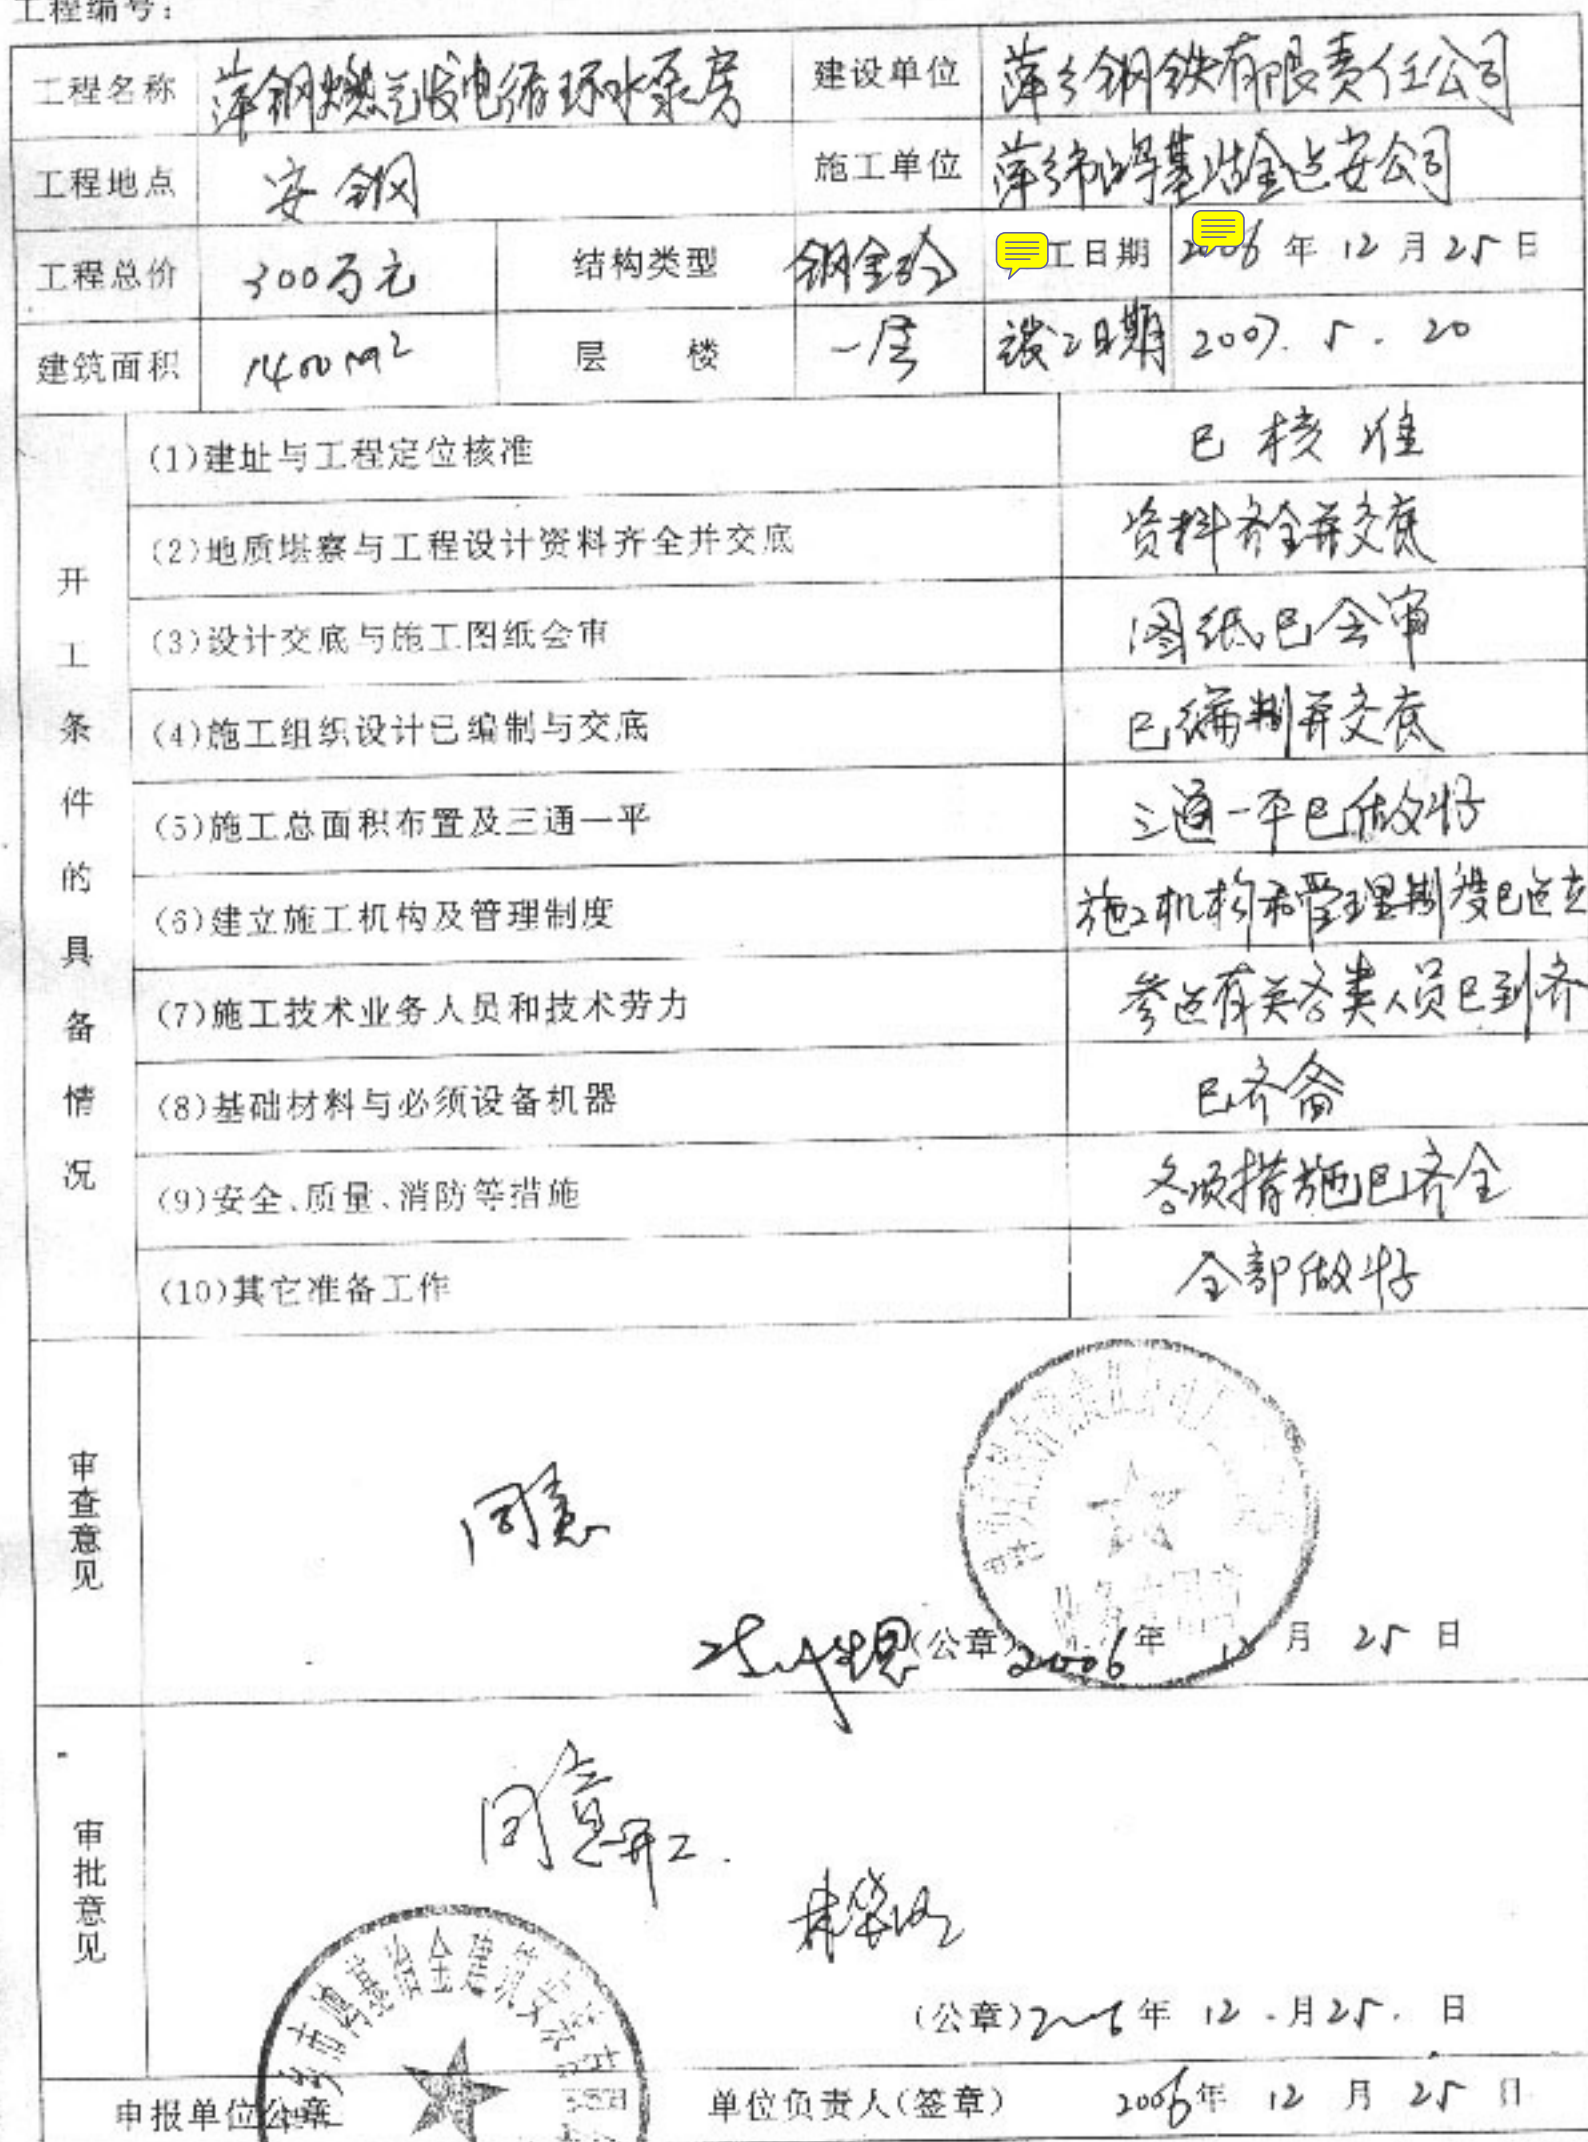 工程编号：
工程名称 萍钢燃气发电循环水泵房 建设单位 萍乡钢铁有限责任公司
工程地点 安钢 施工单位 萍乡市鸿基冶金建安公司
工程总价 300万元 结构类型 钢全砼 工日期 2006年12月25日
建筑面积 1400m² 层楼 一层 竣工日期 2007.5.20
开工条件的具备情况
(1)建址与工程定位核准 已核准
(2)地质堪察与工程设计资料齐全并交底 资料齐全并交底
(3)设计交底与施工图纸会审 图纸已会审
(4)施工组织设计已编制与交底 已编制并交底
(5)施工总面积布置及三通一平 三通一平已做好
(6)建立施工机构及管理制度 施工机构和管理制度已建立
(7)施工技术业务人员和技术劳力 参建有关各类人员已到齐
(8)基础材料与必须设备机器 已齐备
(9)安全、质量、消防等措施 各项措施已齐全
(10)其它准备工作 全部做好
审查意见
同意
(公章) 2006年12月25日
审批意见
同意开工.
乡市鸿基冶金建筑安装
(公章) 2006年12.月25.日
申报单位公章 单位负责人(签章) 2006年12月25日